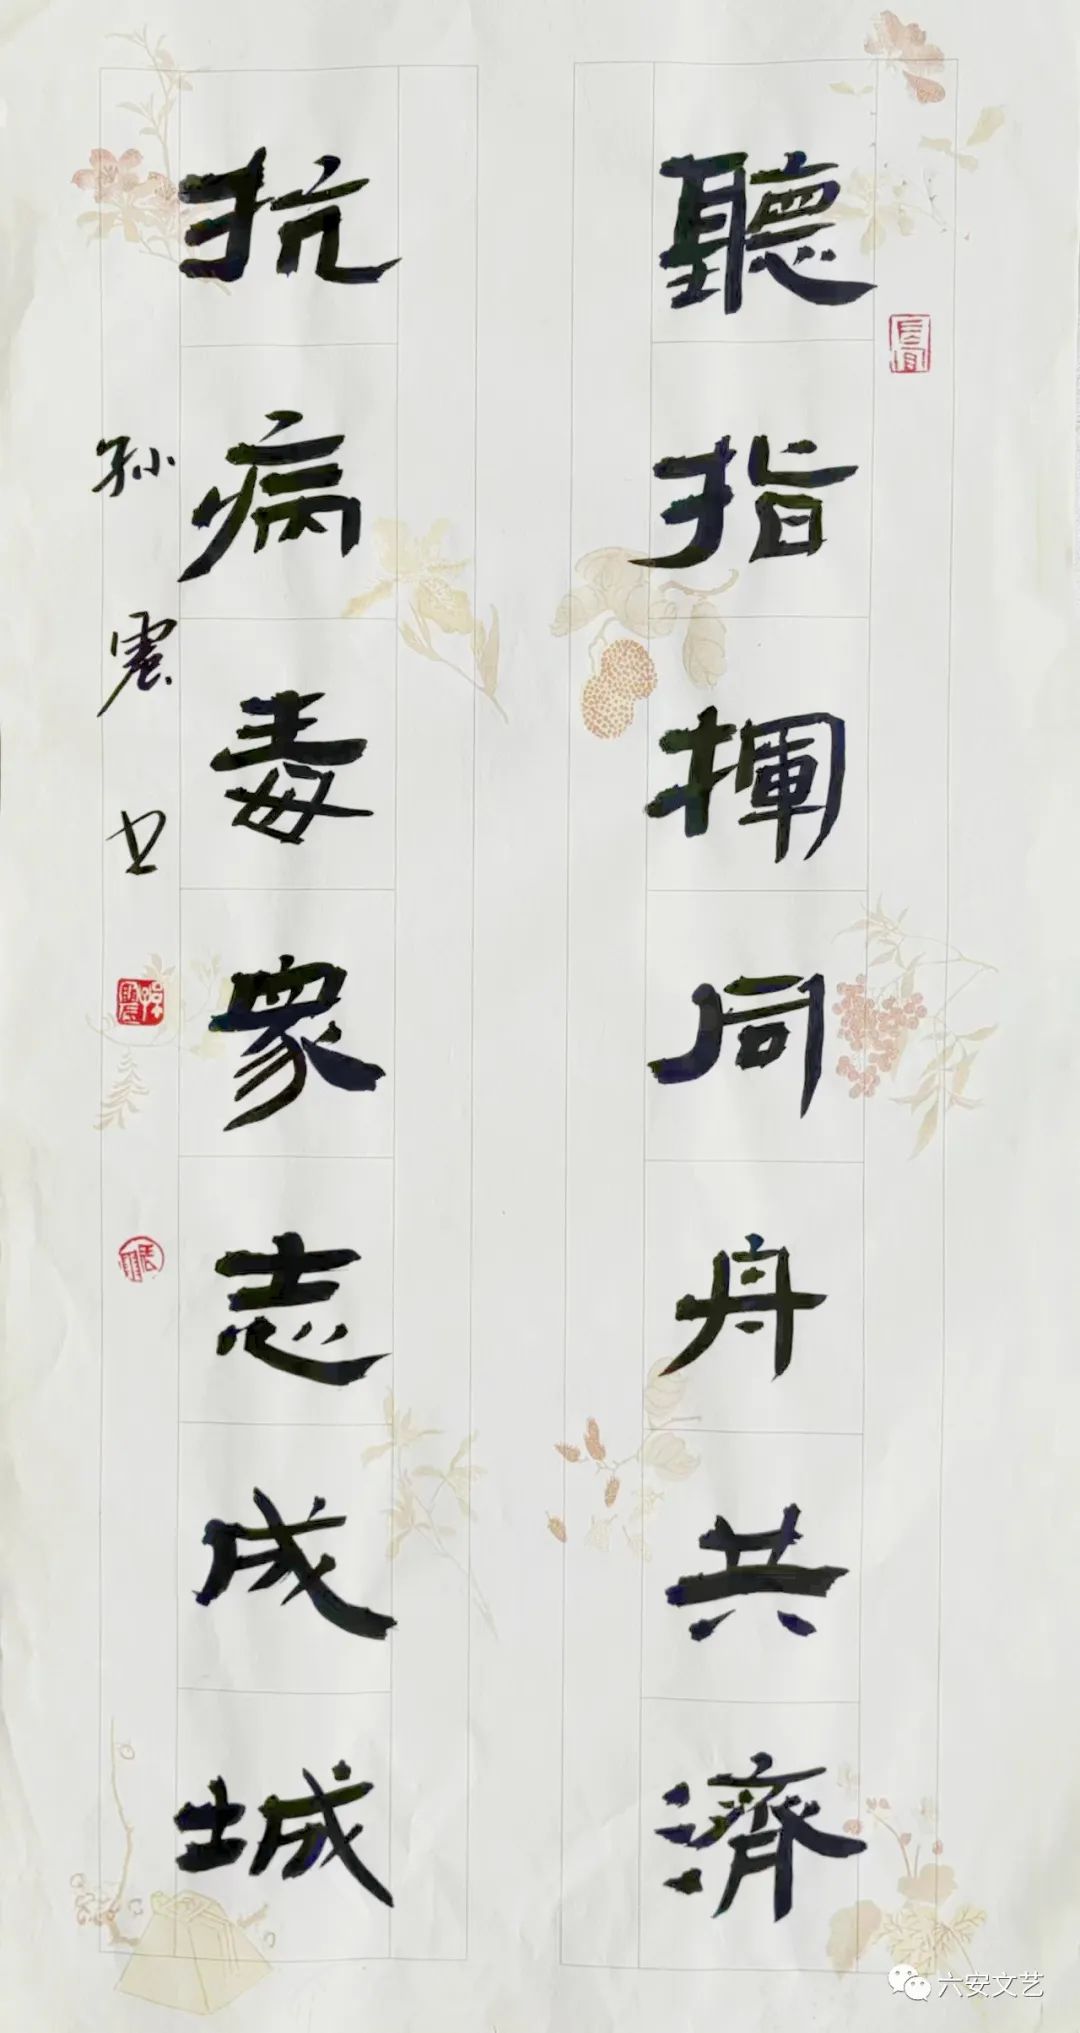 聽指揮同舟共濟
抗病毒眾志成城
孙震书
六安文艺